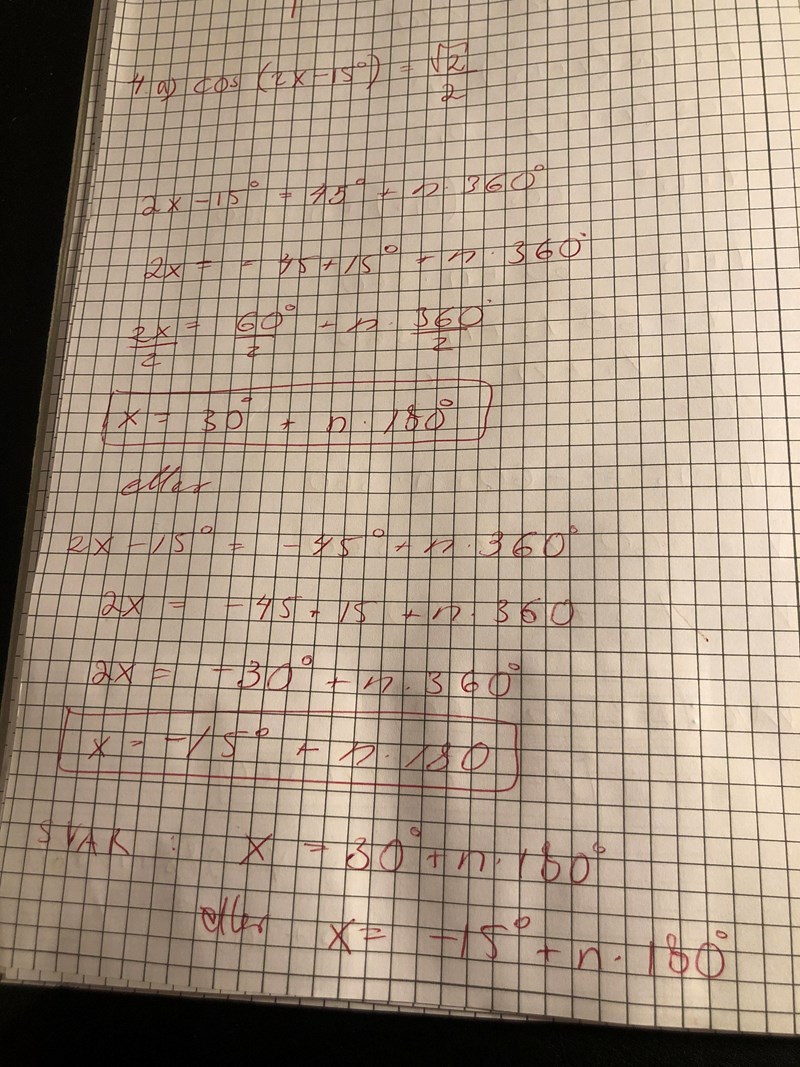 4. a) cos (2x-15°) = √2/2
2x-15° = 45° + n·360°
2x = - 45+15° + n·360°
2x/2 = 60°/2 + n·360°/2
x = 30° + n·180°
eller
2x-15° = -45° + n·360°
2x = -45+15 + n·360
2x = -30° + n·360°
x = -15° + n·180
SVAR : x = 30° + n·180°
eller x = -15° + n·180°